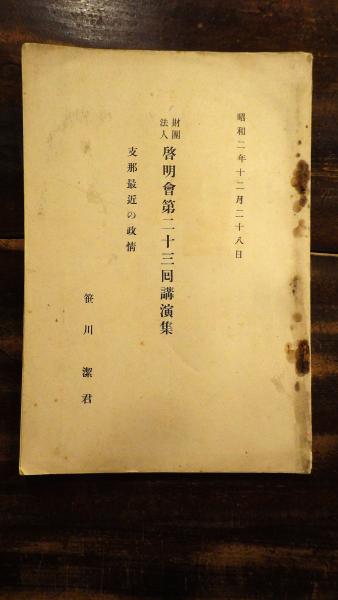 昭和二年十二月二十八日
財團法人 啓明會第二十三回講演集
支那最近の政情
笹川潔君